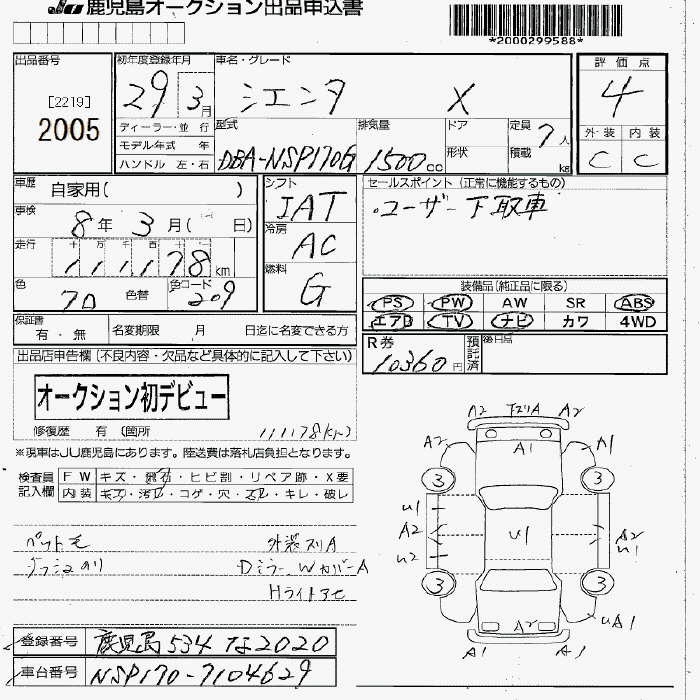 JU 鹿児島オークション出品申込書
*2000299588*
出品番号
[2219]
2005
初年度登録年月
29 3月
ディーラー・並 行
モデル年式 年
ハンドル 左・右
車名・グレード
シエンタ X
型式
DBA-NSP170G
排気量
1500cc
ドア
形状
定員 7人
積載 kg
評価点
4
外装 内装
C C
車歴
自家用( )
車検
8年 3月( 日)
走行
十 万 千 百 十 一
111178km
色
色替
色コード
209
シフト
IAT
冷房
AC
燃料
G
セールスポイント (正常に機能するもの)
・ユーザー下取車
装備品(純正品に限る)
PS PW AW SR ABS
エアB TV ナビ カワ 4WD
保証書
有・無
名変期限 月 日迄に名変できる方
R券
10360円
預託済
後日品
出品店申告欄(不良内容・欠品など具体的に記入して下さい)
オークション初デビュー
修復歴 有 (箇所
111178km)
※現車はJU鹿児島にあります。陸送費は落札店負担となります。
検査員記入欄
FW キズ・飛石・ヒビ割・リペア跡・X要
内装 キズ・汚れ・コゲ・穴・スレ・キレ・破レ
ペット毛 外装スリA
Dミラー、WカバーA
Hライトアセ
A2 下スリA A2
A2 A1 A1
3 3
U1
A2 U1 A2
U2 U1
3 3
A2 UA1
A1 A1
登録番号 鹿児島 534 な2020
車台番号 NSP170-7104629